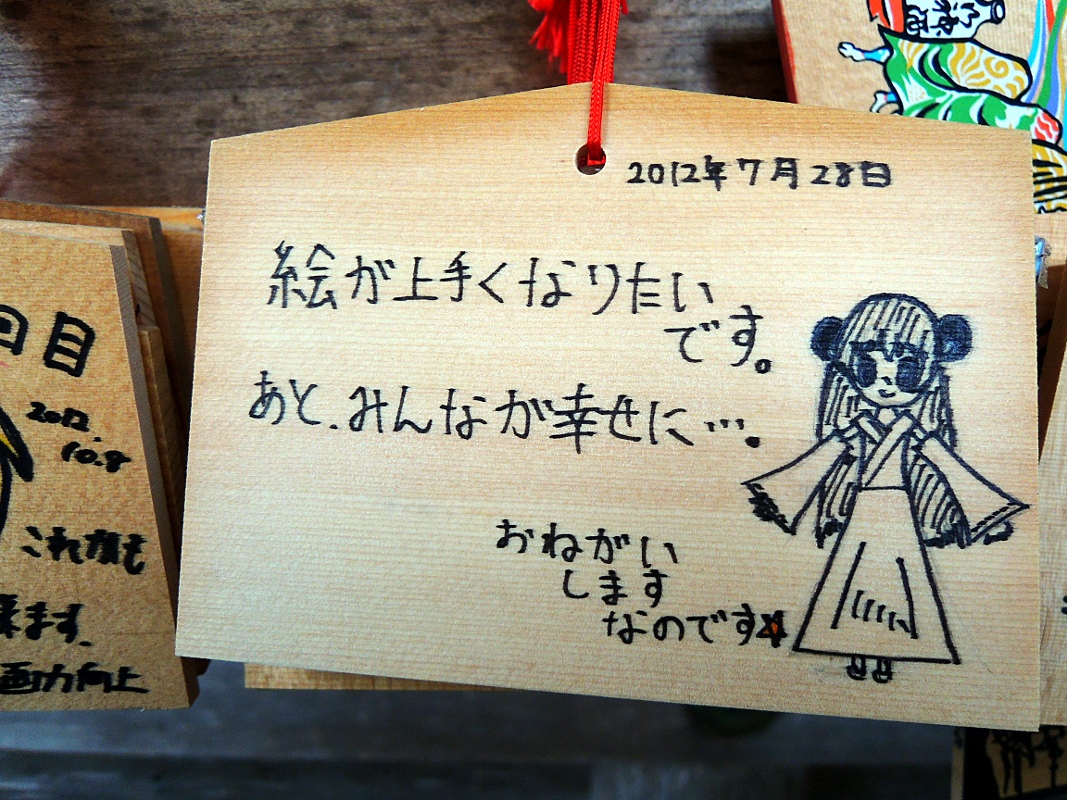 2012年7月28日
絵が上手くなりたい
です。
あと、みんなが幸せに…。
おねがい
します
なのです
回目
2012.
10.8
これからも
来ます。
画力向上